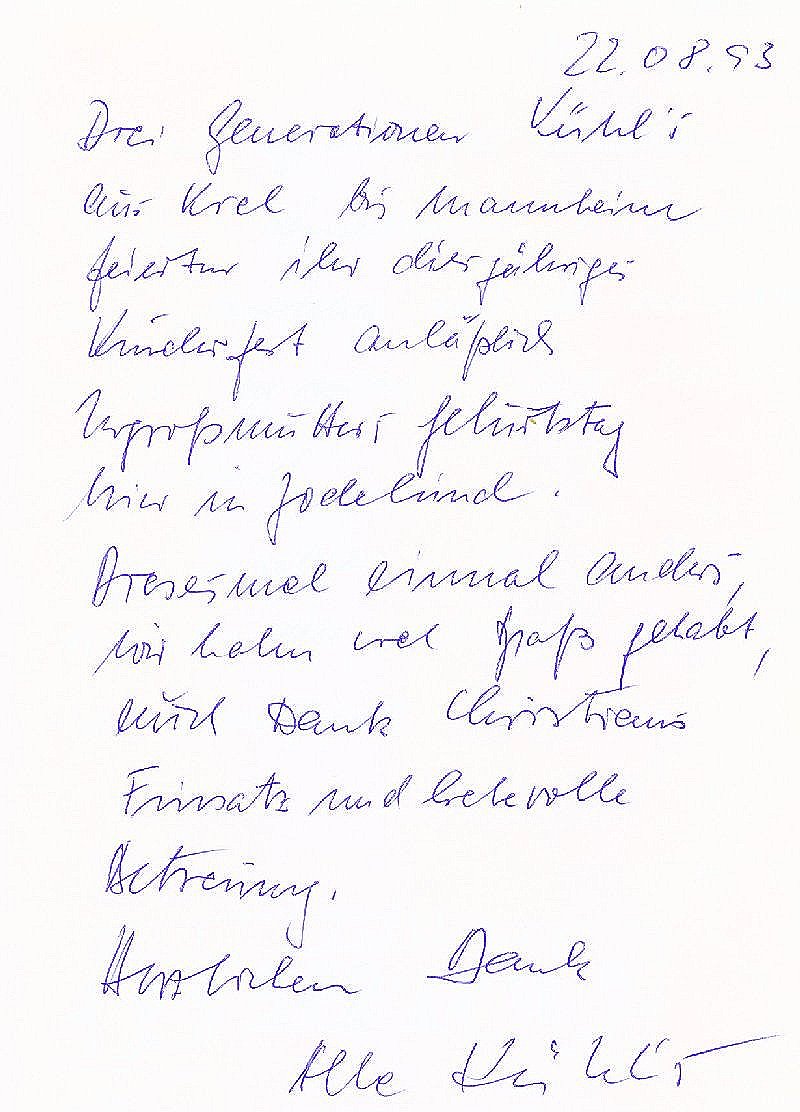 22.08.93
Drei Generationen Kühl's
aus Kiel bis Mannheim
feierten ihr diesjähriges
Kinderfest anläßlich
Urgroßmutters Geburtstag
hier in Joldelund.
Diesesmal einmal anders,
wir haben viel Spaß gehabt,
auch Dank Christians
Einsatz und liebevolle
Betreuung.
Herzlichen Dank
Alle Kühl's